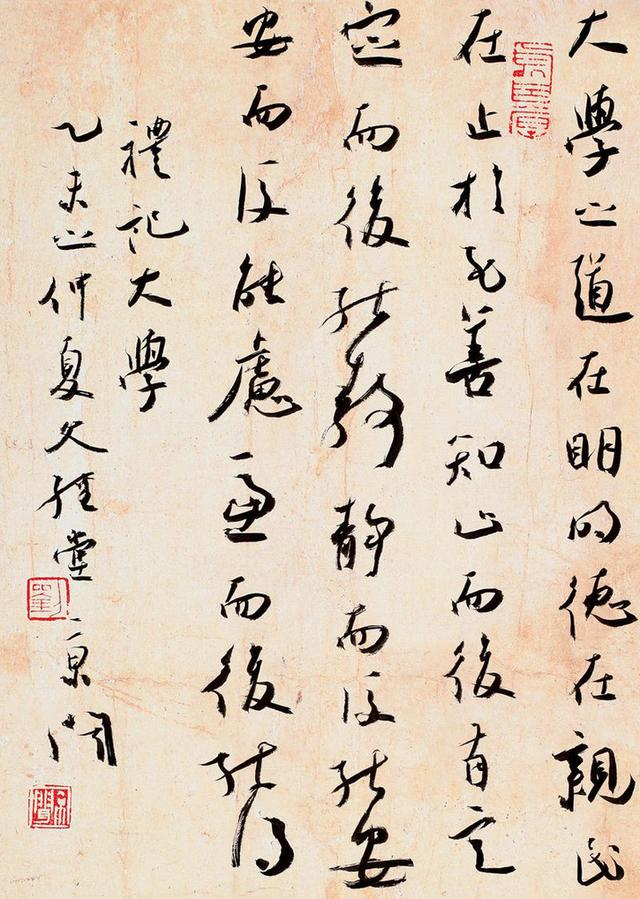 大學之道在明明德在親民
在止於至善知止而後有定
定而後能靜靜而後能安
安而後能慮慮而後能得
禮記大學
乙未之仲夏經堂京聞
劉
京聞